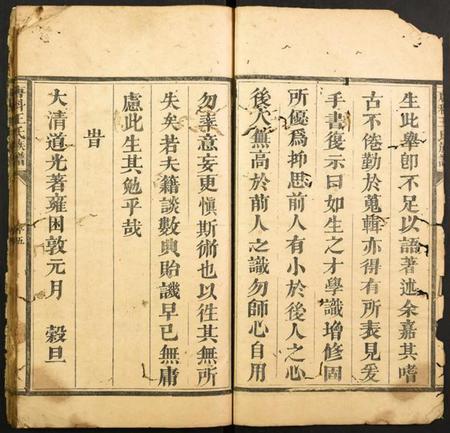 生此舉卽不足以語著述余嘉其嗜
古不倦勤於蒐輯亦得有所表見爰
手書復示曰如生之才學識增修固
所優爲抑思前人有小於後人之心
後人無高於前人之識勿師心自用
勿率意妄更愼斯術也以徃其無所
失矣若夫籍談數典貽譏早已無庸
慮此生其勉乎哉
旹
大清道光著雍困敦元月 穀旦